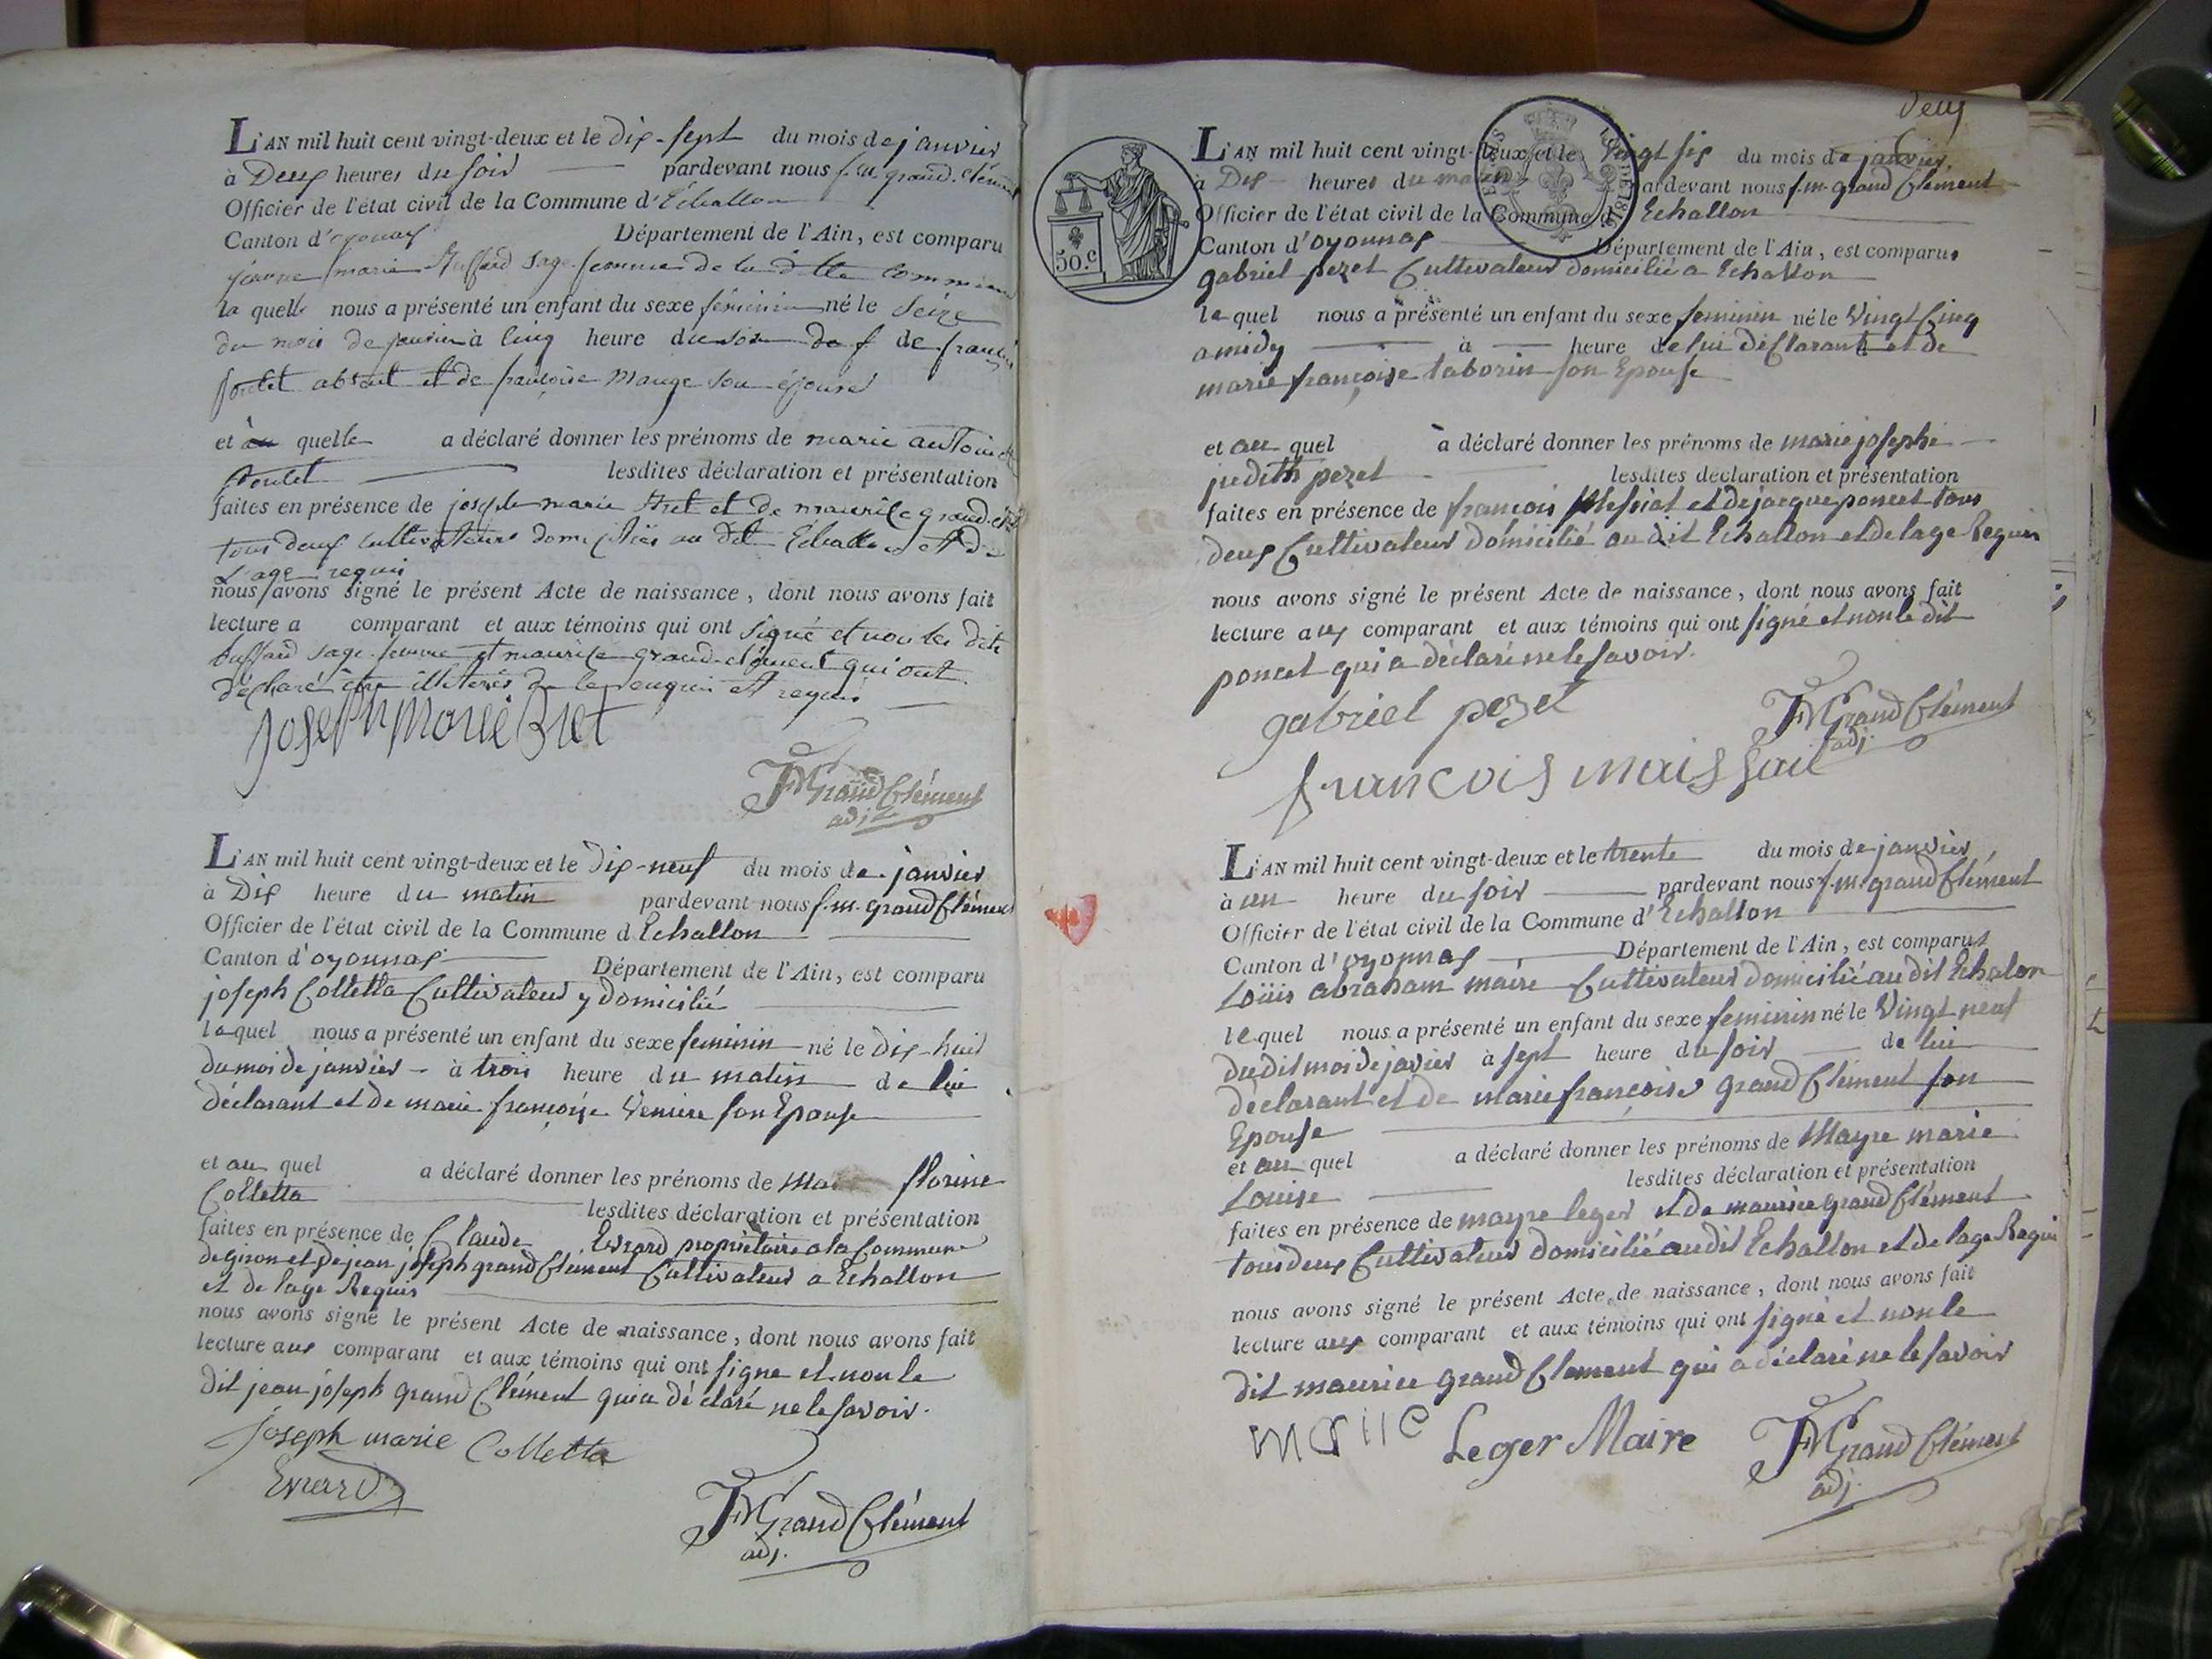 L'AN mil huit cent vingt-deux et le dix-sept du mois de janvier
à Deux heures du soir pardevant nous f. m. grand Clément
Officier de l'état civil de la Commune d'Echallon
Canton d'oyonnax Département de l'Ain, est comparu
jeanne marie Buffard sage femme de la ditte Commune
la quelle nous a présenté un enfant du sexe féminin né le Seize
du mois de janvier à cinq heure du soir de
absent et de françoise Mauge son épouse
et quelle a déclaré donner les prénoms de marie antoinette
lesdites déclaration et présentation
faites en présence de joseph marie et de maurice grand
tous deux cultivateurs domiciliés au dit Echallon et de
L'age requis
nous avons signé le présent Acte de naissance, dont nous avons fait
lecture a comparant et aux témoins qui ont signé et non les dits
buffard sage femme et maurice grand clément qui ont
déclaré être illiterés de le enquis et requis
joseph marie Bret
FMGrand Clément
adj.
L'AN mil huit cent vingt-deux et le Dix-neuf du mois de janvier
à Dix heure du matin pardevant nous f. m. grand Clément
Officier de l'état civil de la Commune d Echallon
Canton d'oyonnax Département de l'Ain, est comparu
joseph Colletta Cultivateur y domicilié
le quel nous a présenté un enfant du sexe feminin né le dix-huit
du moi de janvier à trois heure du matin de lui
déclarant et de marie françoise Veniere son Epouse
et au quel a déclaré donner les prénoms de florine
Colletta lesdites déclaration et présentation
faites en présence de Claude Evrard propriétaire a la Commune
de giron et de jean joseph grand Clément Cultivateur a Echallon
et de l'age Requis
nous avons signé le présent Acte de naissance, dont nous avons fait
lecture aux comparant et aux témoins qui ont signe et non le
dit jean joseph grand Clément qui a déclaré ne le savoir.
joseph marie Colletta
Evrard
FMGrand Clément
adj.
Deux
50.c
L'AN mil huit cent vingt-deux et le Vingt six du mois de janvier.
à Dix heures du matin pardevant nous f. m. grand Clément
Officier de l'état civil de la Commune d Echallon
Canton d'oyonnax Département de l'Ain, est comparus
gabriel pezet Cultivateur domicilié a Echallon
le quel nous a présenté un enfant du sexe feminin né le Vingt Cinq
a midy à heure de lui déclarant et de
marie françoise taborin son Epouse
et au quel a déclaré donner les prénoms de marie josephe
judith pezet lesdites déclaration et présentation
faites en présence de françois et de jacque poncet tous
deux Cultivateur domicilié au dit Echallon et de lage Requis
nous avons signé le présent Acte de naissance, dont nous avons fait
lecture aux comparant et aux témoins qui ont signé et non le dit
poncet qui a déclaré ne le savoir.
gabriel pezet
FMGrand Clément
adj.
francois maissiat
L'AN mil huit cent vingt-deux et le trente du mois de janvier
à un heure du soir pardevant nous f. m. grand Clément
Officier de l'état civil de la Commune d'Echallon
Canton d'oyonnax Département de l'Ain, est comparus
Loüis abraham maire Cultivateur domicilié au dit Echalon
le quel nous a présenté un enfant du sexe feminin né le Vingt neuf
du dit moi de javier à sept heure du soir de lui
déclarant et de marie françoise grand Clément son
Epouse
et au quel a déclaré donner les prénoms de Mayre marie
Louise lesdites déclaration et présentation
faites en présence de mayre leger et de maurice grand Clément
tous deux Cultivateur domicilié au dit Echallon et de lage Requis
nous avons signé le présent Acte de naissance, dont nous avons fait
lecture aux comparant et aux témoins qui ont signé et non le
dit maurice grand Clement qui a déclaré ne le savoir
Leger Maire
FMGrand Clément
adj.